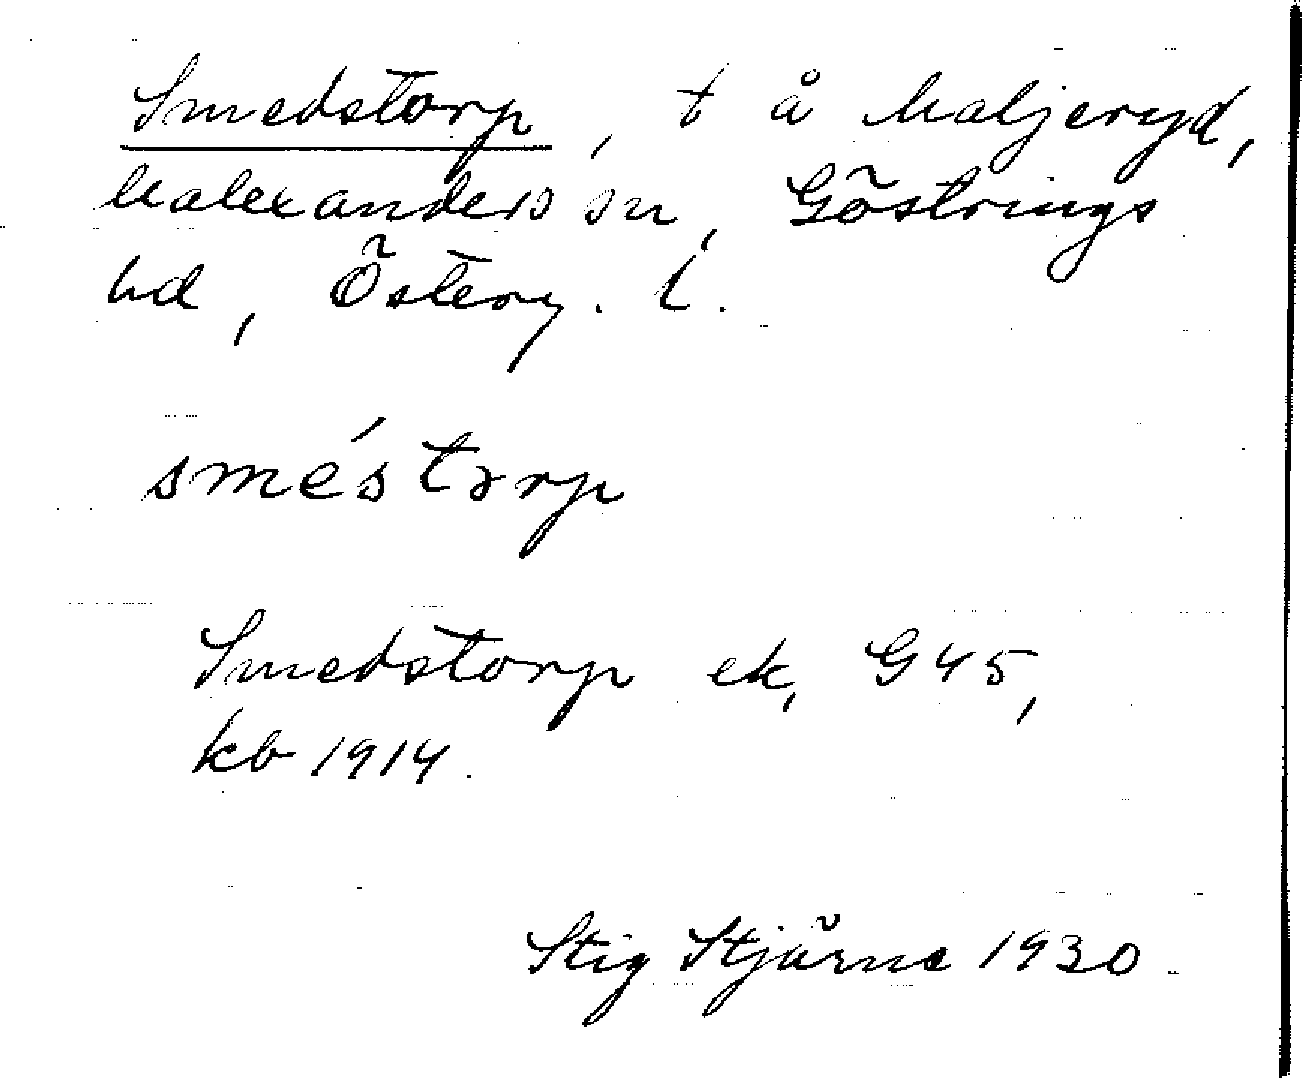 Smedstorp, t å Maljeryd,
Malexanders sn, Göstrings
hd, Österg. l.
sméstɔrp
Smedstorp ek, G45,
kb 1914.
Stig Stjärne 1930